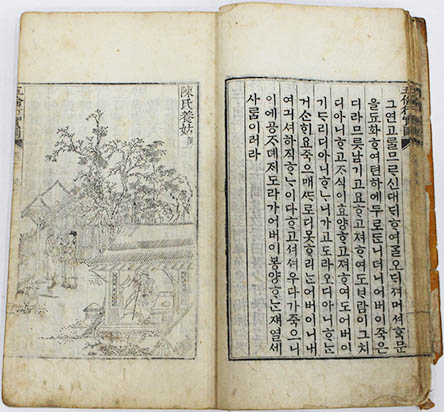 그연고ᄅᆞᆯ므ᄅᆞ신대ᄃᆡ답ᄒᆞ여ᄀᆞᆯ오ᄃᆡ져머셔ᄒᆞᆨ문
을됴화ᄒᆞ여텬하에두로ᄃᆞᆫ니더니어버이죽은
디라므릇남기고요ᄒᆞ고져ᄒᆞ여도ᄇᆞ람이그치
디아니ᄒᆞ고ᄌᆞ식이효양ᄒᆞ고져ᄒᆞ여도어버이
기ᄃᆞ리디아니ᄒᆞᄂᆞ니가고도라오디아니ᄒᆞᄂᆞᆫ
거ᄉᆞᆫᄒᆡ요죽으매ᄯᆞ로디못ᄒᆞ리ᄂᆞᆫ어버이니내
여긔셔하직ᄒᆞᄂᆞ이다ᄒᆞ고셔셔우다가죽으니
이에공ᄌᆞ뎨ᄌᆞ도라가어버이봉양ᄒᆞᄂᆞᆫ쟤열세
사ᄅᆞᆷ이러라
陳氏養姑 漢
五倫行實圖